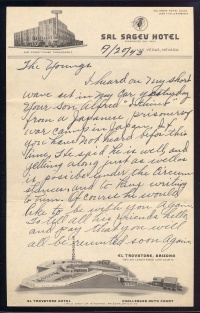 SAL SAGEV HOTEL
VEGAS, NEVADA
9/29/43
The Youngs
I heard on my short
wave set in my car yesterday
Your son Alfred
from a Japanese prisoners
war camp in Japan. If
you have not heard before this
time, he said he is well and
getting along just as well as
is posible under the circum
stances, and to keep writing
to him. Of course he would
like to be with you again.
To tell all his friends hello,
and pray that you will
all be reunited soon again.
EL TROVATORE, ARIZONA
EL TROVATORE HOTEL
AUTO COURT